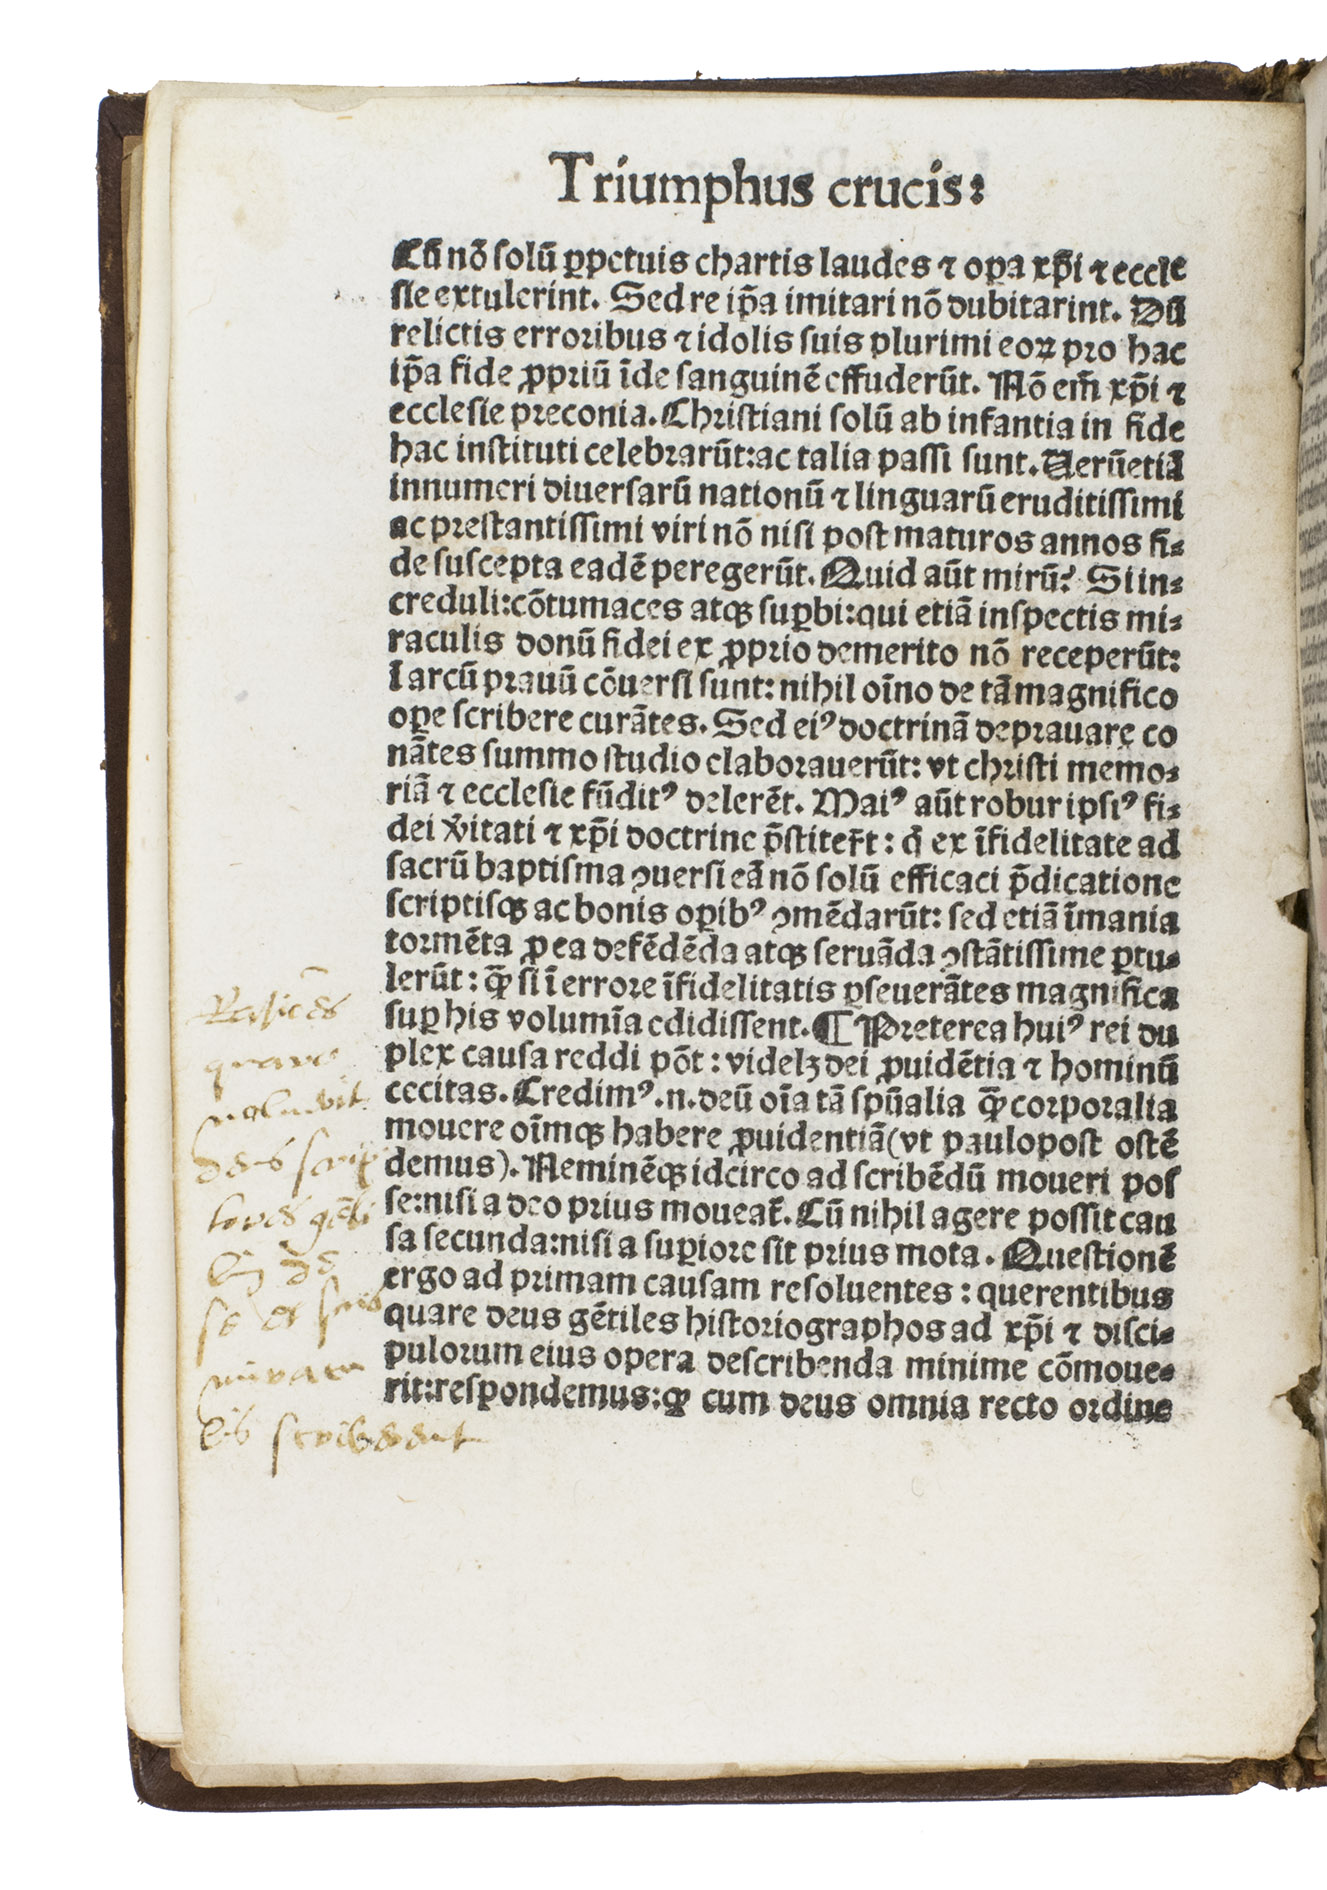 Triumphus crucis:
Cū nō solū ꝑpetuis chartis laudes ⁊ oꝑa xp̄i ⁊ eccle
sie extulerint. Sed re ip̄a imitari nō dubitarint. Dū
relictis erroribus ⁊ idolis suis plurimi eoꝝ pro hac
ip̄a fide ꝓpriū īde sanguinē effuderūt. Nō em̄ xp̄i ⁊
ecclesie preconia. Christiani solū ab infantia in fide
hac instituti celebrarūt: ac talia passi sunt. Uerūetiā
innumeri diuersarū nationū ⁊ linguarū eruditissimi
ac prestantissimi viri nō nisi post maturos annos fi⸗
de suscepta eadē peregerūt. Quid aūt mirū? Si in⸗
creduli: cōtumaces atqꝫ suꝑbi: qui etiā inspectis mi⸗
raculis donū fidei ex ꝓprio demerito nō receperūt:
I arcū prauū cōuersi sunt: nihil oīno de tā magnifico
oꝑe scribere curātes. Sed eiꝰ doctrinā deprauare co
nātes summo studio elaborauerūt: vt christi memo⸗
riā ⁊ ecclesie fūditꝰ delerēt. Maiꝰ aūt robur ipsiꝰ fi⸗
dei v̄itati ⁊ xp̄i doctrine p̄stiter̄t: q̄ ex īfidelitate ad
sacrū baptisma ꝯuersi eā nō solū efficaci p̄dicatione
scriptisqꝫ ac bonis oꝑibꝰ ꝯmēdarūt: sed etiā īmania
tormēta ꝓ ea defēdēda atqꝫ seruāda ꝯstātissime ꝑtu⸗
lerūt: qꝫ̄ si ī errore īfidelitatis ꝑseuerātes magnifica
suꝑ his volumīa edidissent. ¶ Preterea huiꝰ rei du
plex causa reddi pōt: videlꝫ dei ꝓuidētia ⁊ hominū
cecitas. Credimꝰ .n. deū oīa tā sp̄ualia qꝫ̄ corporalia
mouere oīmqꝫ habere ꝓuidentiā (vt paulopost ostē
demus). Neminēqꝫ idcirco ad scribēdū moueri pos
se: nisi a deo prius moueat̄. Cū nihil agere possit cau
sa secunda: nisi a suꝑiore sit prius mota. Questionē
ergo ad primam causam resoluentes: querentibus
quare deus gētiles historiographos ad xp̄i ⁊ disci⸗
pulorum eius opera describenda minime cōmoue⸗
rit: respondemus: ꝙ cum deus omnia recto ordine
quare
noluerit
deus scrip
tores gēti
se et suis
scriberent